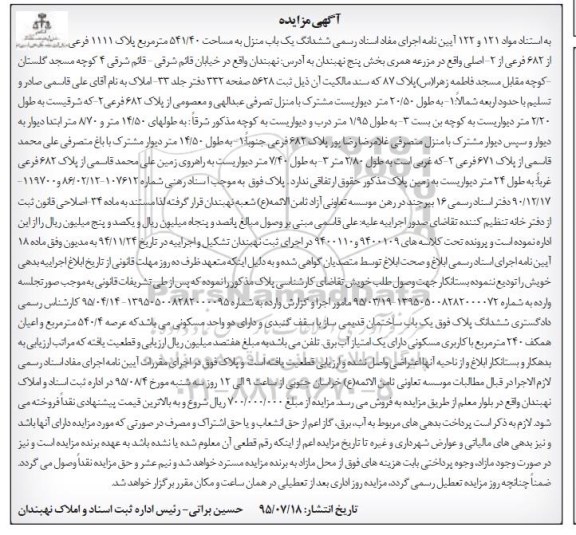 آگهی مزایده
به استناد مواد ۱۲۱ و ۱۲۲ آیین نامه اجرای مفاد اسناد رسمی ششدانگ یک باب منزل به مساحت ۵۴۱/۴۰ مترمربع پلاک ۱۱۱۱ فرعی
از ۶۸۲ فرعی از ۲- اصلی واقع در مزرعه همری بخش پنج نهبندان به آدرس: نهبندان واقع در خیابان قائم شرقی - قائم شرقی ۴ کوچه مسجد گلستان
-کوچه مقابل مسجد فاطمه زهرا(س) پلاک ۸۷ که سند مالکیت آن ذیل ثبت ۵۶۲۸ صفحه ۳۳۲ دفتر جلد ۳۳- املاک به نام آقای علی قاسمی صادر و
تسلیم با حدود اربعه شمالاً:۱- به طول ۲۰/۵۰ متر دیواریست مشترک با منزل تصرفی عبدالهی و معصومی از پلاک ۶۸۲ فرعی ۲-که شرقیست به طول
۲/۲۰ متر دیواریست به کوچه بن بست ۳- به طول ۱/۹۵ متر درب و دیواریست به کوچه مذکور شرقاً: به طولهای ۱۴/۵۰ متر و ۸/۷۰ متر ابتدا دیوار به
دیوار و سپس دیوار مشترک با منزل متصرفی غلامرضا رضا پور پلاک ۶۸۲ فرعی جنوباً:۱- به طول ۱۴/۵۰ متر دیوار مشترک با باغ متصرفی علی محمد
قاسمی از پلاک ۶۷۱ فرعی ۲-که غربی است به طول ۲/۸۰ متر ۳- به طول ۷/۴۰ متر دیواریست به راهروی زمین علی محمد قاسمی از پلاک ۶۸۲ فرعی
غرباً: به طول ۲۴ متر دیواریست به زمین پلاک مذکور حقوق ارتفاقی ندارد . پلاک فوق به موجب اسناد رهنی شماره ۱۰۷۶۱۲-۸۶/۰۲/۱۳ و ۱۱۹۷۰۰-
۹۰/۱۲/۱۷ دفتر اسناد رسمی ۱۶ بیرجند در رهن موسسه تعاونی آزاد ثامن الائمه(ع) شعبه نهبندان قرار گرفته لذا مستند به ماده ۳۴- اصلاحی قانون ثبت
از دفتر خانه تنظیم کننده تقاضای صدور اجراییه علیه: علی قاسمی مبنی بر وصول مبالغ پانصد و پنجاه میلیون ریال و یکصد و پنج میلیون ریال را از این
اداره نموده است و پرونده تحت کلاسه های ۹۴۰۰۱۰۹ و ۹۴۰۰۱۱۰ در اجرای ثبت نهبندان تشکیل و اجراییه در تاریخ ۹۴/۱۱/۲۴ به مدیون وفق ماده ۱۸
آیین نامه اجرای اسناد رسمی ابلاغ و صحت ابلاغ توسط متصدیان گواهی شده و به دلیل اینکه متعهد ظرف ده روز مهلت قانونی از تاریخ ابلاغ اجراییه بدهی
خویش را تودیع ننموده بستانکار جهت وصول طلب خویش تقاضای کارشناسی پلاک مذکور را نموده که پس از طی تشریفات قانونی به موجب صورتجلسه
وارده به شماره ۱۳۹۵۰۵۰۰۸۲۸۲۰۰۰۰۷۲-۹۵/۰۳/۱۹ مامور اجرا و گزارش وارده به شماره ۱۳۹۵۰۵۰۰۸۲۸۲۰۰۰۰۹۵-۹۵/۰۴/۱۴ کارشناس رسمی
دادگستری ششدانگ پلاک فوق یک باب ساختمان قدیمی ساز با سقف گنبدی و دارای دو واحد مسکونی می باشد که عرصه ۵۴۰/۴ مترمربع و اعیان
همکف ۲۴۰ مترمربع با کاربری مسکونی دارای یک امتیاز آب برق، تلفن می باشد به مبلغ هفتصد میلیون ریال ارزیابی و قطعیت یافته که مراتب ارزیابی به
بدهکار و بستانکار ابلاغ و از ناحیه آنها اعتراضی واصل نشده و ارزیابی قطعیت یافته است و پلاک فوق در اجرای مقررات آیین نامه اجرای مفاد اسناد رسمی
لازم الاجرا در قبال مطالبات موسسه تعاونی ثامن الائمه(ع) خراسان جنوبی از ساعت ۹ الی ۱۲ روز سه شنبه مورخ ۹۵/۰۸/۴ در اداره ثبت اسناد و املاک
نهبندان واقع در بلوار معلم از طریق مزایده به فروش می رسد. مزایده از مبلغ ۷۰۰/۰۰۰/۰۰۰ ریال شروع و به بالاترین قیمت پیشنهادی نقداً فروخته می
شود. لازم به ذکر است پرداخت بدهی های مربوط به آب، برق، گاز اعم از حق انشعاب و یا حق اشتراک و مصرف در صورتی که مورد مزایده دارای آنها باشد
و نیز بدهی های مالیاتی و عوارض شهرداری و غیره تا تاریخ مزایده اعم از اینکه رقم قطعی آن معلوم شده یا نشده باشد به عهده برنده مزایده است و نیز
در صورت وجود مازاد، وجوه پرداختی بابت هزینه های فوق از محل مازاد به برنده مزایده مسترد خواهد شد و نیم عشر و حق مزایده نقداً وصول می گردد.
ضمناً چنانچه روز مزایده تعطیل رسمی گردد، مزایده روز اداری بعد از تعطیلی در همان ساعت و مکان مقرر برگزار خواهد شد.
تاریخ انتشار: ۹۵/۰۷/۱۸ حسین براتی- رئیس اداره ثبت اسناد و املاک نهبندان